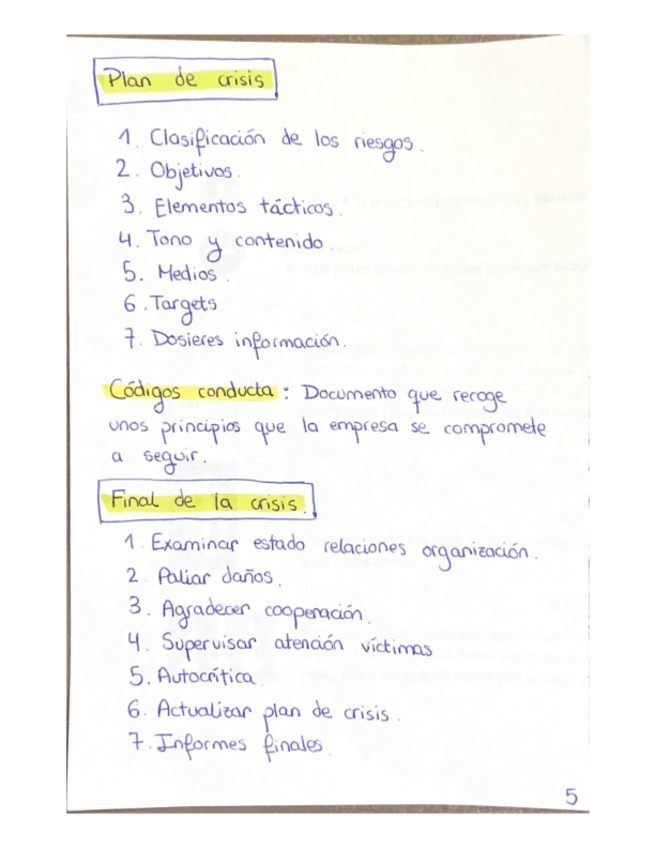 Plan de crisis
1. Clasificación de los riesgos.
2. Objetivos.
3. Elementos tácticos.
4. Tono y contenido.
5. Medios.
6. Targets
7. Dosieres información.
Códigos conducta: Documento que recoge
unos principios que la empresa se compromete
a seguir.
Final de la crisis.
1. Examinar estado relaciones organización.
2. Paliar daños.
3. Agradecer cooperación.
4. Supervisar atención víctimas
5. Autocrítica.
6. Actualizar plan de crisis.
7. Informes finales.
5